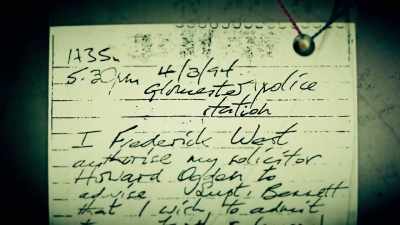 5.30pm 4/3/94
Gloucester police
station
I Frederick West
authorise my solicitor
Howard Ogden to
advise Supt. Bennett
that I wish to admit